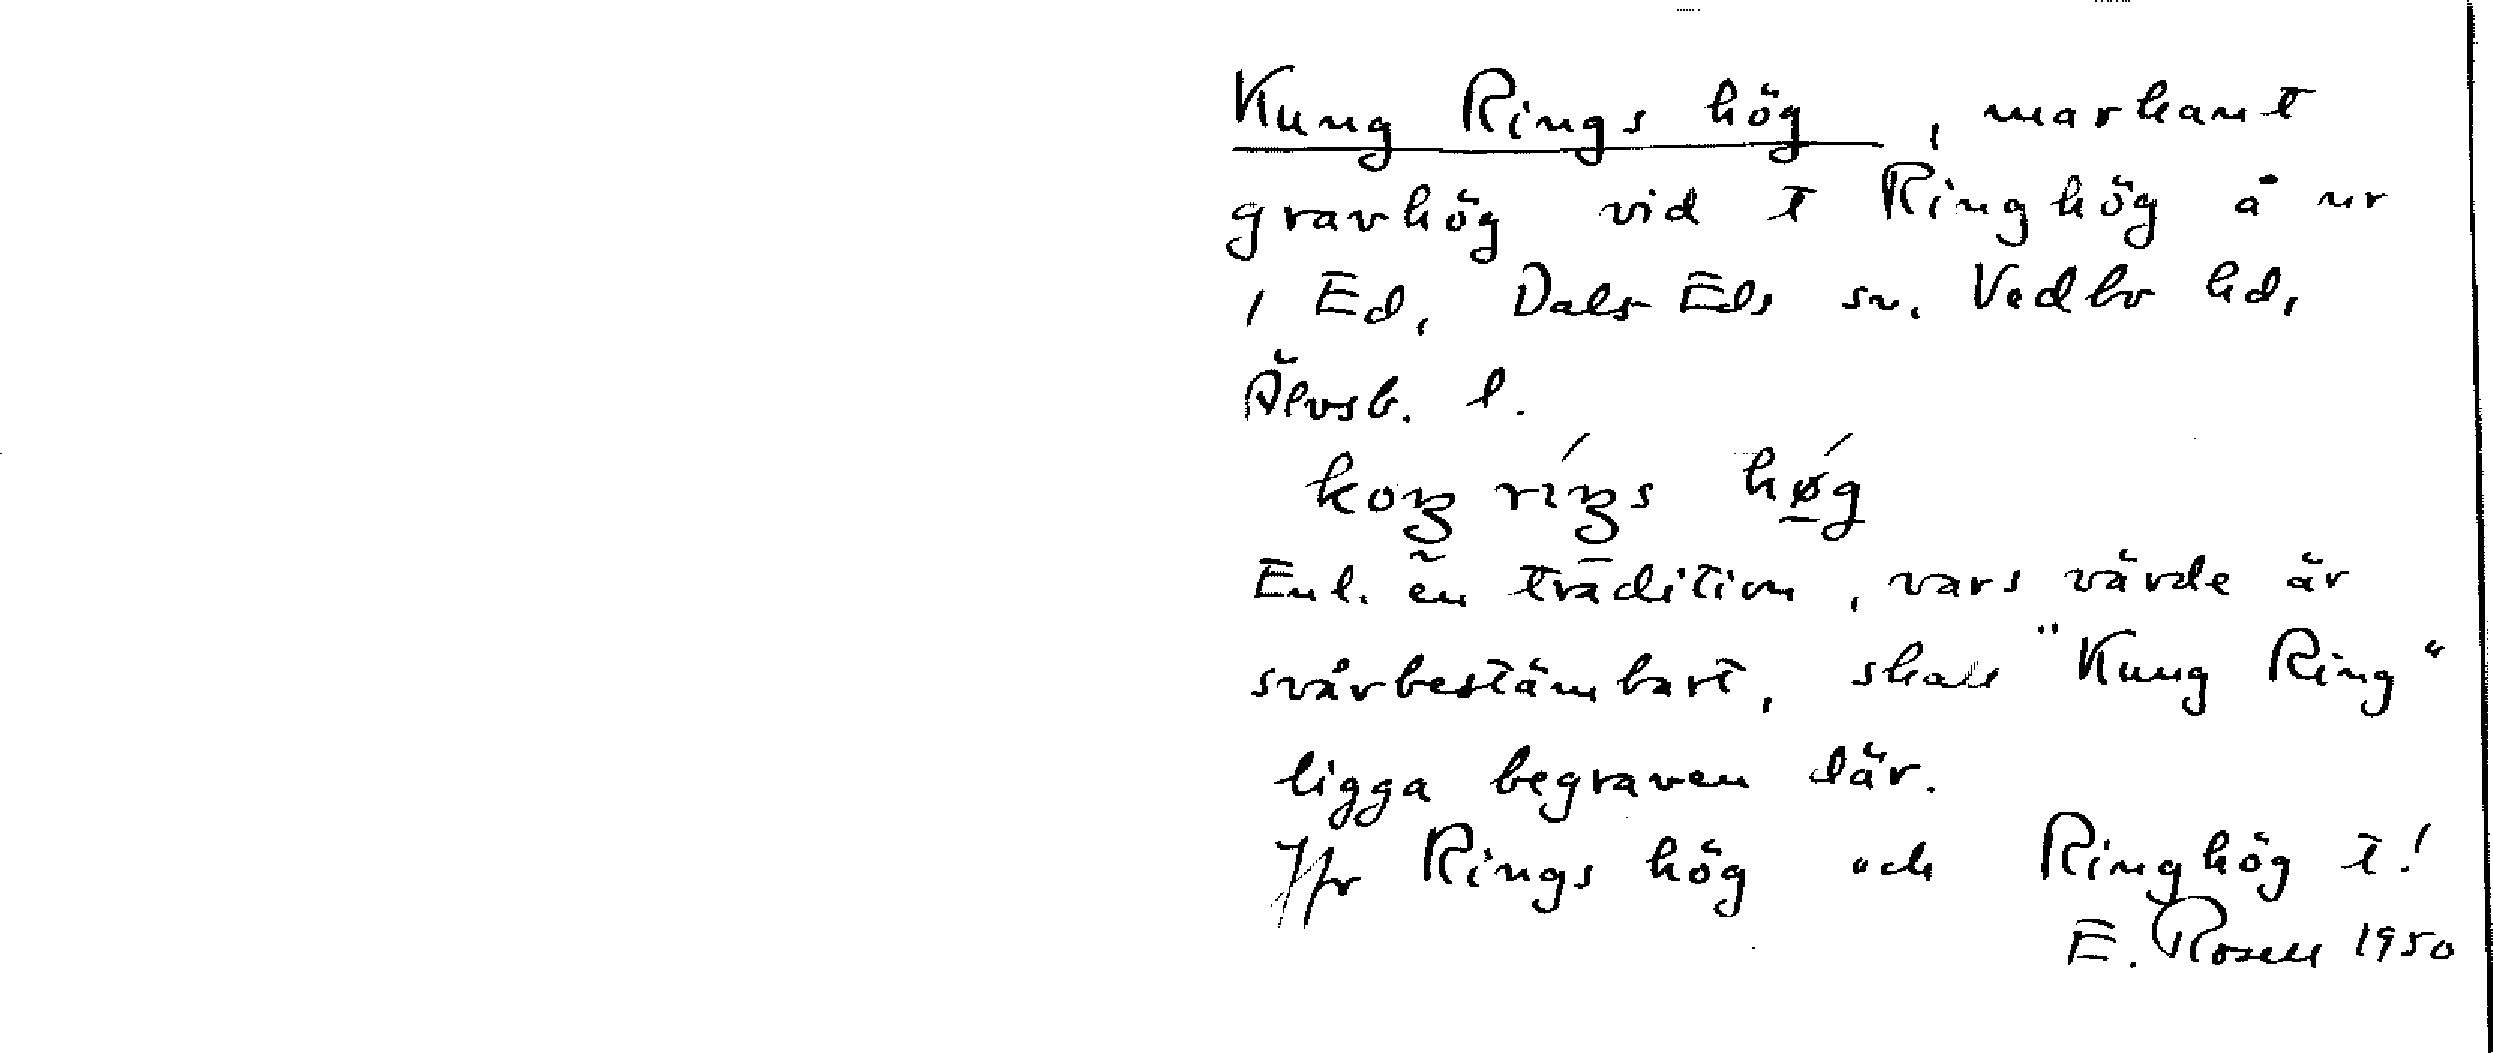 Kung Rings hög, markant
gravhög vid t Ringhög å nr
1 Ed, Dals-Eds sn. Vedbo hd,
Älvsb. l.
koŋ ríŋs hǿg
Enl. en tradition, vars värde är
svårbestämbart, skall "Kung Ring"
ligga begraven där.
Jfr Rings hög och Ringhög t!
E. Rosell 1950